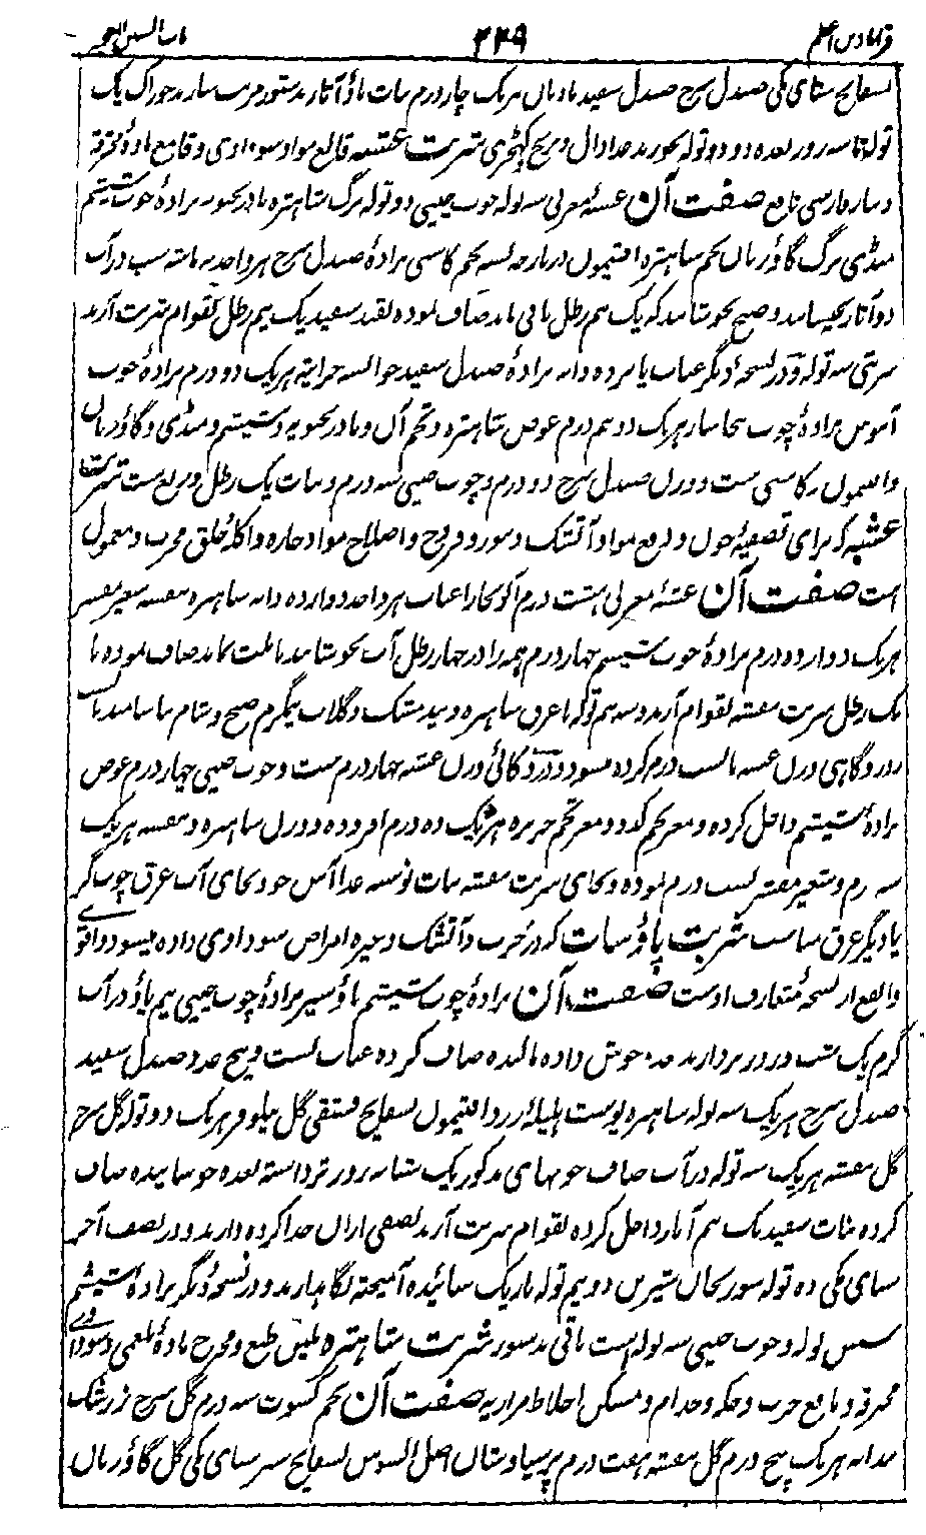 قرابادین اعظم ۲۲۹ باب الشین المعجمہ
بسفایج سنای مکی صندل سرخ صندل سفید بادیان ہریک چار درم نبات پاؤ آثار بدستور مرتب سازند خوراک یک
تولہ تا سہ روز بعدہ دو دو تولہ بخورند غذا دال و برنج کھچڑی شربت عشبہ قالع مواد سوداوی و قامع مادۂ محرقہ
و نار فارسی نافع صفت آن عشبۂ مغربی سہ تولہ چوب چینی دو تولہ برگ شاہترہ بادرنجبویہ برادۂ چوب شیشم
منڈی برگ گاؤزبان تخم شاہترہ افتیمون در پارچہ بستہ تخم کاسنی برادۂ صندل سرخ ہر واحد نہ ماشہ شب در آب
دو آثار بخیسانند و صبح بجوشانند کہ یک نیم رطل باقی ماند صاف نمودہ بقند سفید یک نیم رطل بقوام شربت آرند
شربتی سہ تولہ و در نسخۂ دیگر عناب پانزدہ دانہ برادۂ صندل سفید جوالسہ چرایتہ ہریک دو درم برادۂ چوب
آبنوس برادۂ چوب بیجاسار ہریک دو نیم درم عوض شاہترہ و تخم آن و بادرنجبویہ و شیشم و منڈی و گاؤزبان
و افتیمون و کاسنی ست و وزن صندل سرخ دو درم و چوب چینی سہ درم و نبات یک رطل و ربع ست شربت
عشبہ کہ برای تصفیۂ خون و دفع مواد آتشک و بثور و قروح و اصلاح مواد حارہ و اکلۂ حلق مجرب و معمول
است صفت آن عشبۂ مغربی ہشت درم آلوبخارا عناب ہر واحد دوازدہ دانہ شاہترہ بنفشہ شعیر مقشر
ہریک دوازدہ درم برادۂ چوب شیشم چہار درم ہمہ را در چہار رطل آب بجوشانند تا ثلث بماند صاف نمودہ با
یک رطل شربت بنفشہ بقوام آرند و سہ نیم تولہ با عرق شاہترہ و بید مشک و گلاب نیم گرم صبح و شام بیاشامند تا بست
روز و گاہی وزن عشبہ تا بست درم کردہ میشود و در ذکائی وزن عشبہ چہار درم ست و چوب چینی چہار درم عوض
برادۂ شیشم داخل کردہ و مغز تخم کدو و مغز تخم خربزہ ہریک دہ درم افزودہ و وزن شاہترہ و بنفشہ ہریک
سہ درم و شعیر مقشر بست درم نمودہ و بجای شربت بنفشہ نبات نوشتہ غذا آش جو و بجای آب عرق چوب گز
یا دیگر عرق مناسب شربت پاؤ نبات کہ در جرب و آتشک و غیرہ امراض سوداوی دادہ میشود و اقوی
و انفع از نسخۂ متعارف اوست صفت آن برادۂ چوب شیشم پاؤ سیر برادۂ چوب چینی نیم پاؤ در آب
گرم یک شب و روز بردارند بعدہ جوش دادہ مالیدہ صاف کردہ عناب بست و پنج عدد صندل سفید
صندل سرخ ہریک سہ تولہ شاہترہ پوست ہلیلۂ زرد افتیمون بسفایج فستقی گل نیلوفر ہریک دو تولہ گل سرخ
گل بنفشہ ہریک سہ تولہ در آب صاف چوبہای مذکور یک شبانہ روز تر داشتہ بعدہ جوشانیدہ صاف
کردہ نبات سفید یک نیم آثار داخل کردہ بقوام شربت آرند نصفی ازان جدا کردہ دارند و در نصف آخر
سنای مکی دہ تولہ سورنجان شیرین دو نیم تولہ باریک سائیدہ آمیختہ نگاہدارند و در نسخۂ دیگر برادۂ شیشم
شش تولہ و چوب چینی سہ تولہ است باقی بدستور شربت شاہترہ ملین طبع و مخرج مادۂ بلغمی و سوداوی
محرقہ و نافع جرب و حکہ و جذام و مسکن اخلاط مراریہ صفت آن تخم کشوت سہ درم گل سرخ زرشک
بیدانہ ہریک پنج درم گل بنفشہ ہفت درم پرسیاوشان اصل السوس بسفایج سبز سنای مکی گل گاؤزبان